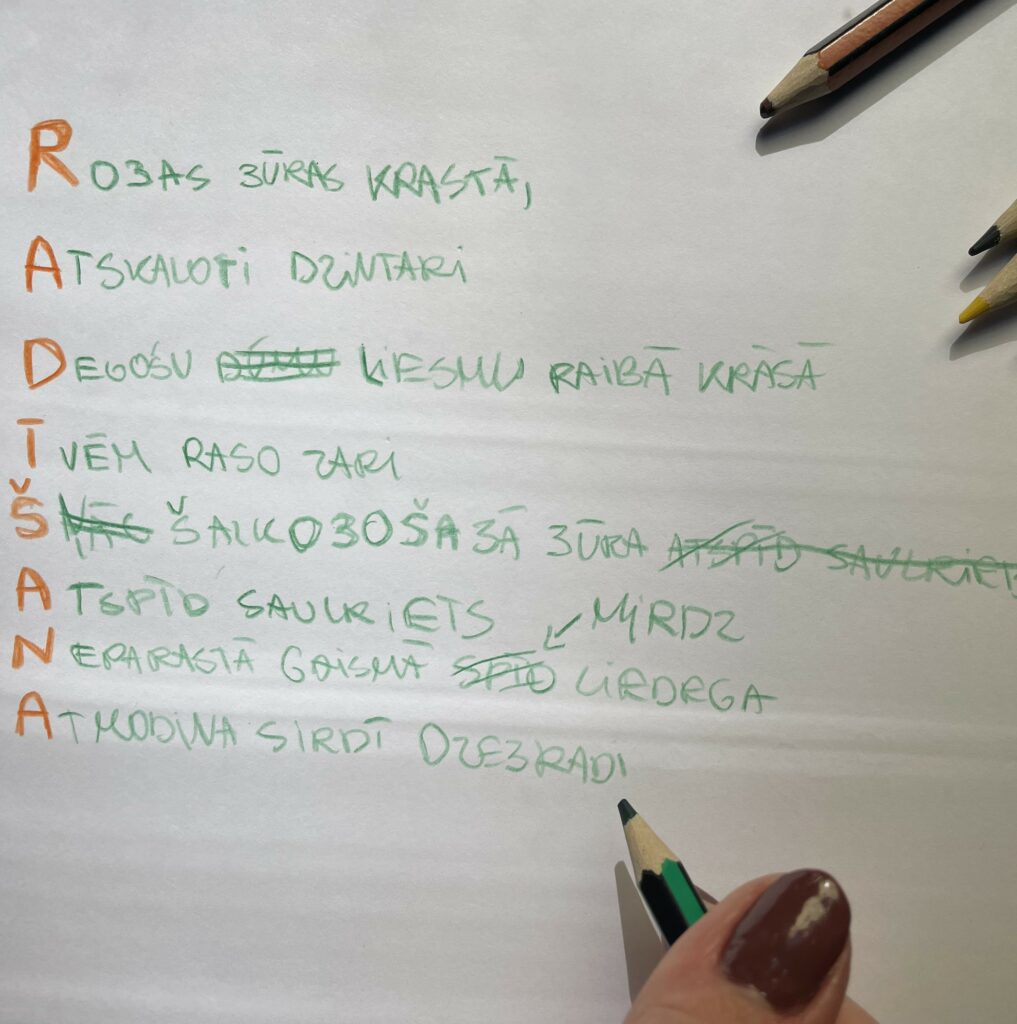 ROJAS JŪRAS KRASTĀ,
ATSKALOTI DZINTARI
DEGOŠU DŪMU LIESMU RAIBĀ KRĀSĀ
ĪVĒM RASO ZARI
ŠALKOJOŠAJĀ JŪRA ATSPĪD SAULRIETS
ATSPĪD SAULRIETS
MIRDZ
NEPARASTĀ GAISMĀ SPĪD
ATMODINA SIRDĪ DZEJRADI